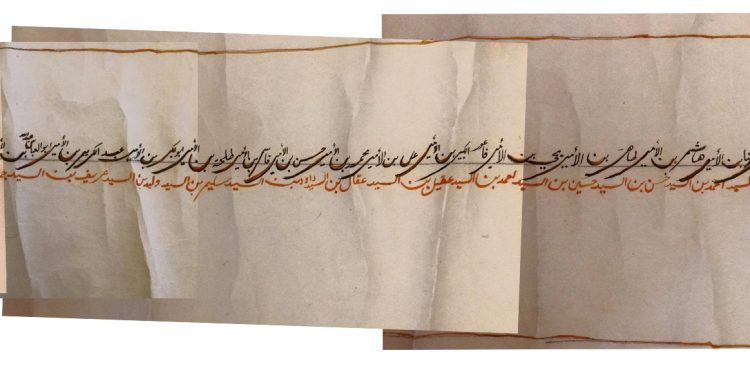 بن الأمير هاشم بن الأمير بن الأمير يحيى بن الأمير قاسم الكبير بن الأمير علي بن الأمير محمد بن الأمير حسن بن الأمير قاسم بن الأمير طلحة بن الأمير بن الأمير عبد الكريم بن الأمير ابو العباس
السيد احمد بن السيد حسن بن السيد حسين بن السيد احمد بن السيد عقيل بن السيد عقال بن السيد داود بن السيد سليم بن السيد وليد بن السيد شريف بن السيد